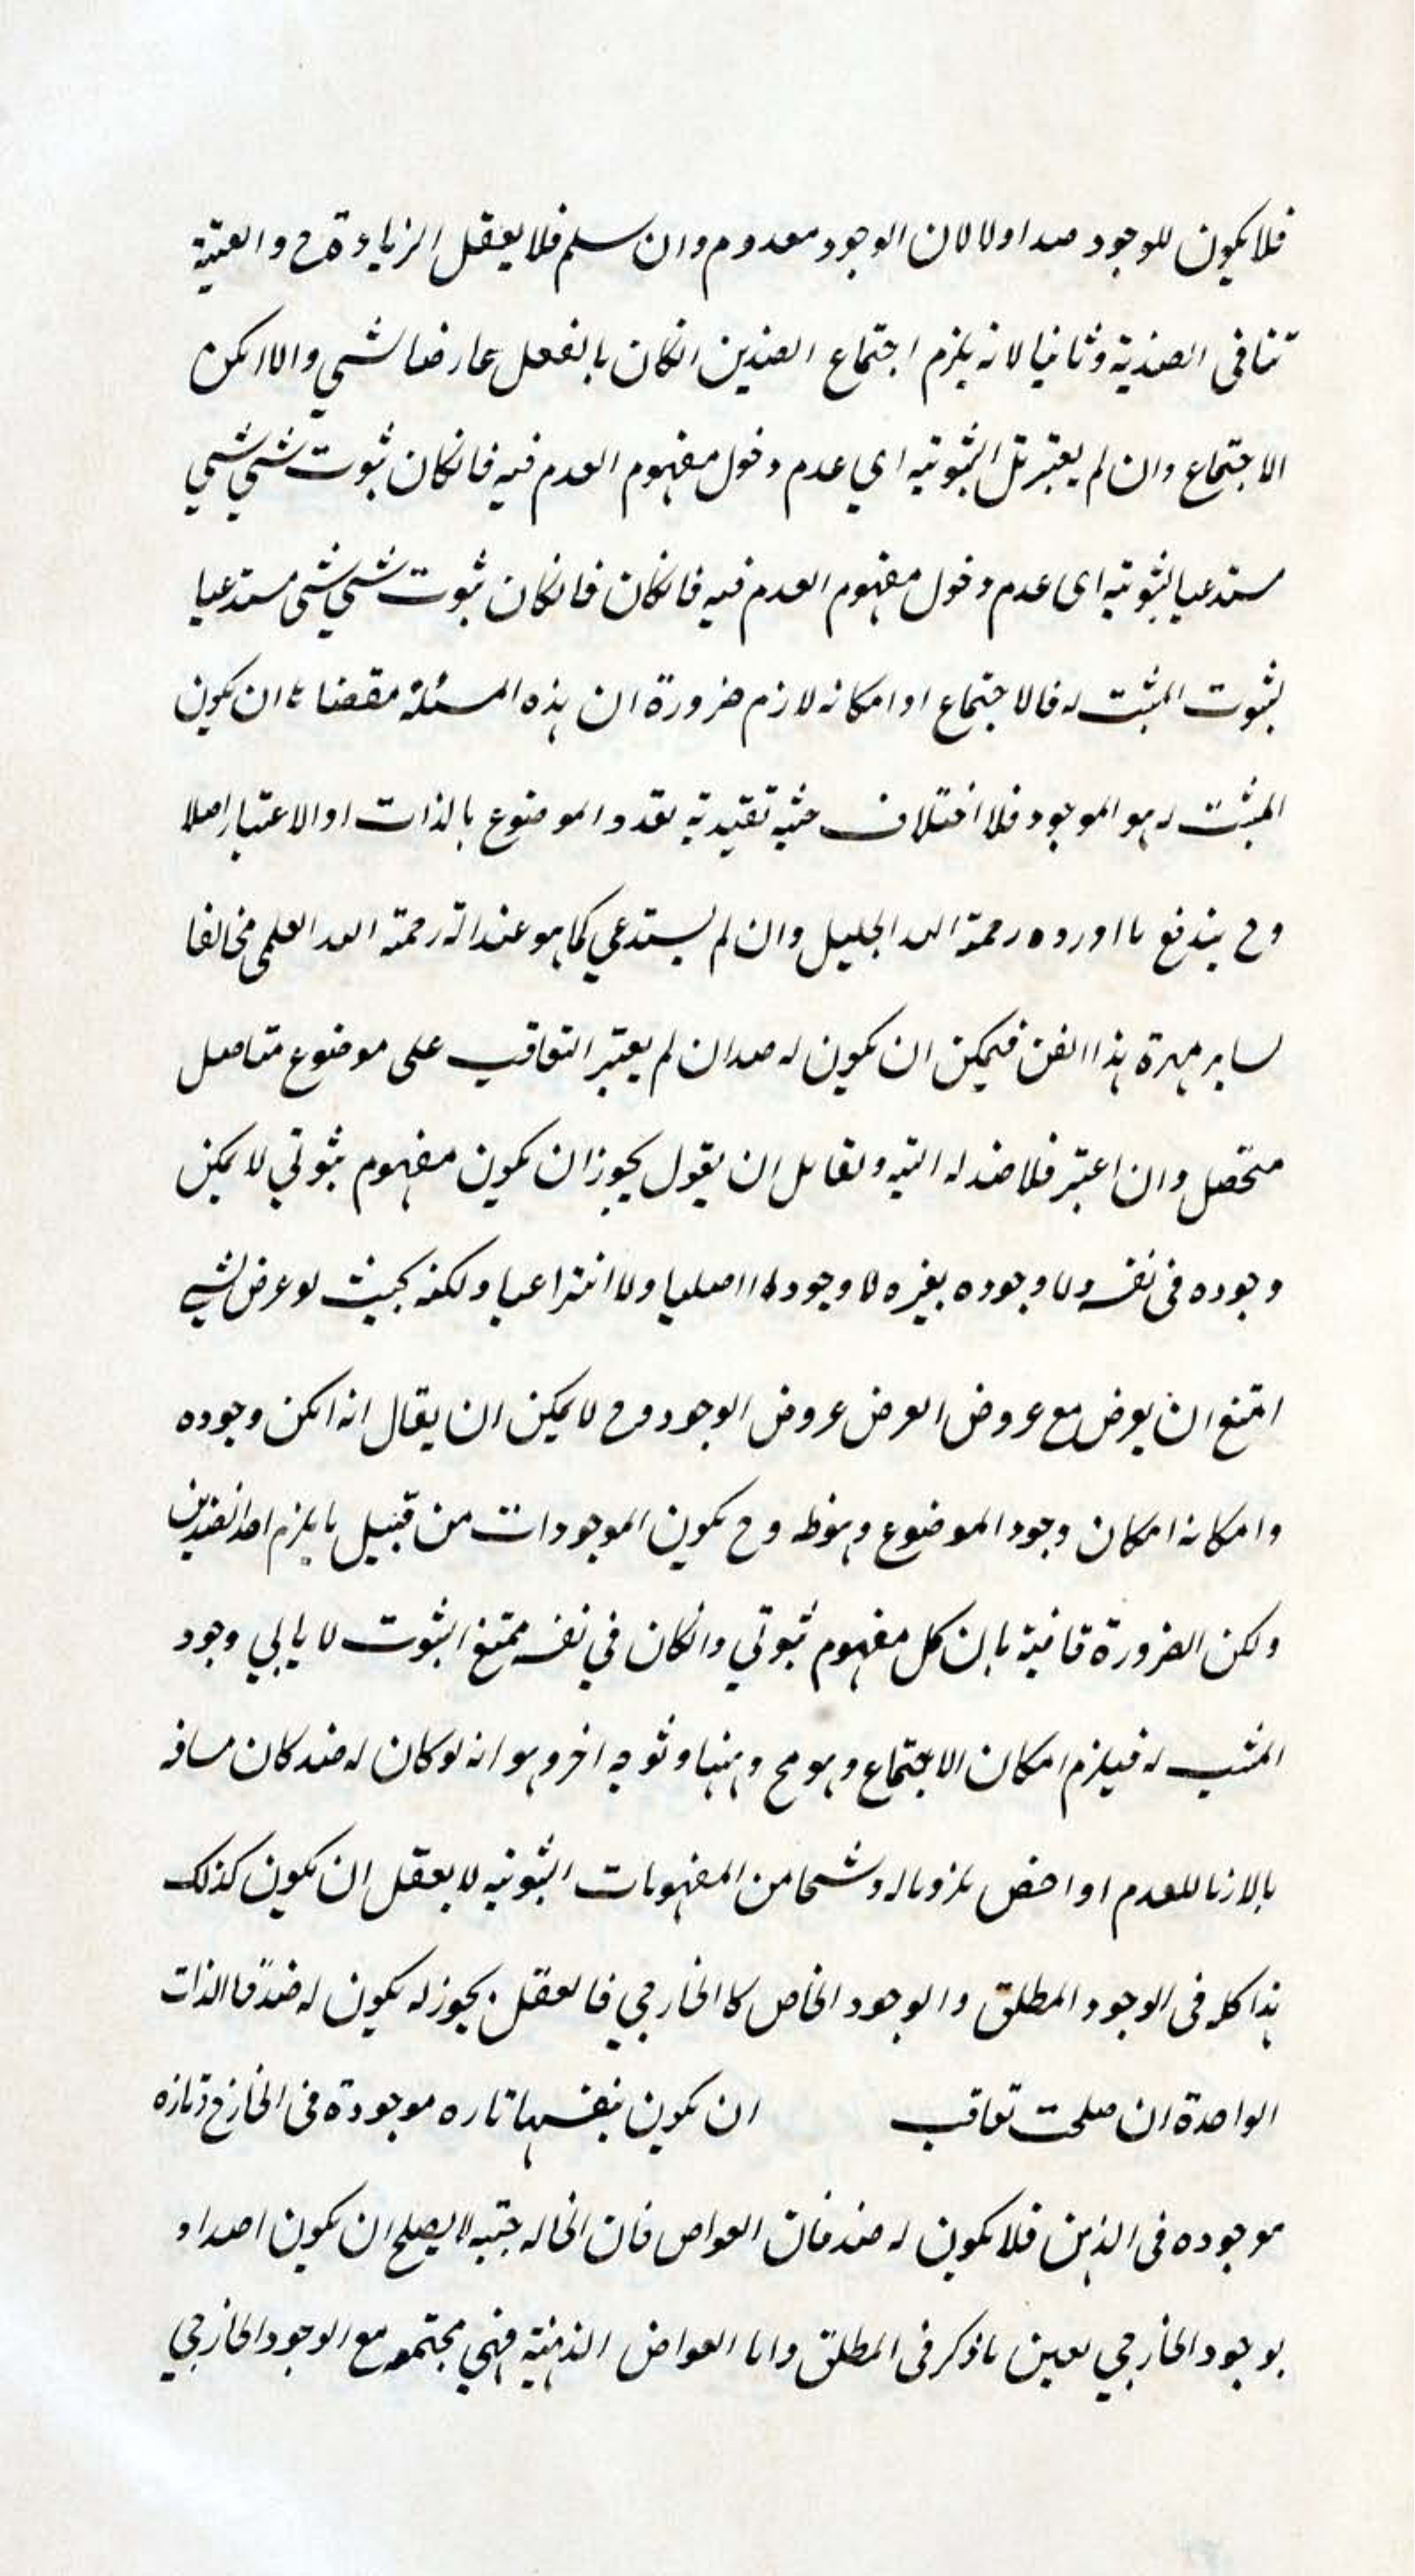 فلا يكون للوجود ضد اولا لان الوجود معدوم وان سلم فلا يعقل الزيادة ح والعينية
تنافى الضدية وثانيا لانه يلزم اجتماع الضدين انكان بالفعل عارضا لشي والا امكن
الاجتماع وان لم يعتبر تلك الثبوتيه اي عدم دخول مفهوم العدم فيه فانكان ثبوت شي لشي
مستدعيا لثبوتيه اى عدم دخول مفهوم العدم فيه فانكان فانكان ثبوت شي لشى مستدعيا
لثبوت المثبت له فالاجتماع او امكانه لازم ضرورة ان هذه المسئلة مقضاة ان يكون
المثبت له هو الموجود فلا اختلاف حثيه تقيدية تعدد الموضوع بالذات او الاعتبار اصلا
وح يندفع ما اورده رحمة الله الجليل وان لم يستدعي كما هو عند رحمة الله العلى مخالفا
لساير مهرة هذا الفن فيمكن ان يكون له ضد ان لم يعتبر التعاقب على موضوع متاصل
متحصل وان اعتبر فلا ضد له البته ولقائل ان يقول يجوز ان يكون مفهوم ثبوتي لا يمكن
وجوده فى نفسه ولا وجوده بغيره لا وجود له اصليا ولا انتزاعيا ولكنه بحيث لو عرض لشي
امتنع ان يعرض مع عروض العرض عروض الوجود وح لا يمكن ان يقال انه امكن وجوده
وامكانه امكان وجود الموضوع وهو ظ وح يكون الموجودات من قبيل ما يلزم احد الضدين
ولكن الضرورة قاضية بان كل مفهوم ثبوتي وانكان في نفسه ممتنع الثبوت لا يابي وجود
المثبت له فيلزم امكان الاجتماع وهو مح وههنا وجه اخر وهو انه لو كان له ضد كان مساوه
بالازما للعدم او اخص ملزوما له وشيا من المفهومات الثبوتيه لا يعقل ان يكون كذلك
هذا كله فى الوجود المطلق والوجود الخاص كالخارجي فالعقل يجوز له يكون له ضد فالذات
الواحدة ان صلحت تعاقب ان يكون بنفسها تاره موجودة فى الخارج وتاره
موجوده فى الذهن فلا يكون له ضد فان العواض فان الخاله جيه لا يصلح ان يكون اضداد
بوجود الخارجي بعين ما ذكر فى المطلق واما العواض الذهنية فهي مجتمعه مع الوجود الخارجي